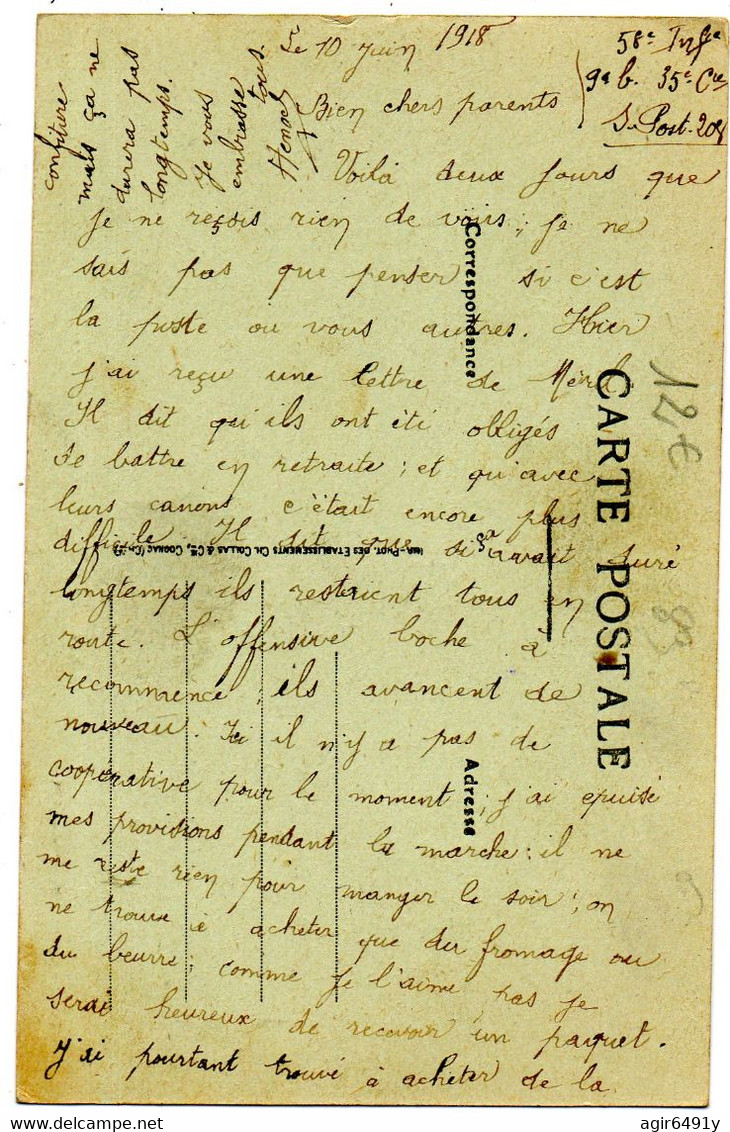 Le 10 Juin 1918
58e Infie
9e b. 35e Cie
S. Post. 208
Bien chers parents
Voilà deux jours que
je ne reçois rien de vous ; je ne
sais pas que penser si c'est
la poste ou vous autres. Hier
j'ai reçu une lettre de
Il dit qu'ils ont été obligés
de battre en retraite ; et qu'avec
leurs canons c'était encore plus
difficile Il dit que si ça avait duré
longtemps ils restaient tous en
route. L'offensive boche à
recommencé ; ils avancent de
nouveau. Ici il n'y a pas de
coopérative pour le moment ; j'ai épuisé
mes provisions pendant la marche ; il ne
me reste rien pour manger le soir ; on
ne trouve à acheter que du fromage ou
du beurre ; comme je l'aime pas je
serai heureux de recevoir un paquet.
J'ai pourtant trouvé à acheter de la
confiture
mais ça ne
durera pas
longtemps.
Je vous
embrasse
tous.
Henoc
CARTE POSTALE
Correspondance
Adresse
IMP.-PHOT. DES ETABLISSEMENTS CH. COLLAS & Cie, COGNAC (Chte)
12€
agir6491y